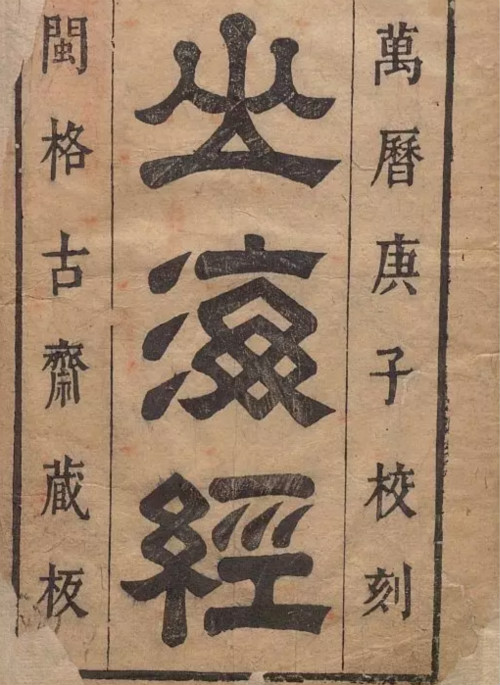 萬曆庚子校刻
山海經
閩格古齋藏板